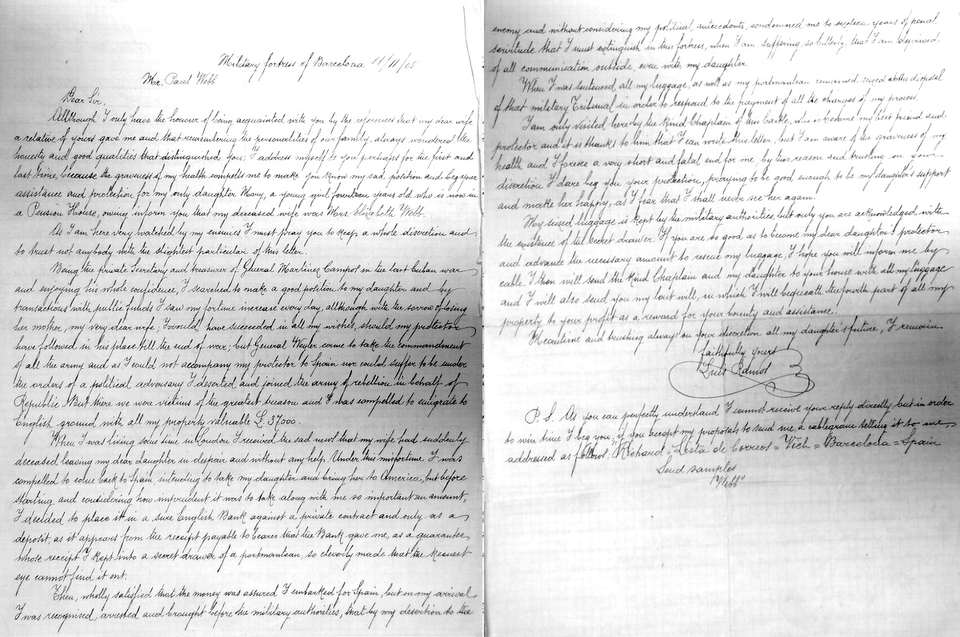 Military fortress of Barcelona 11/11/05
Mr. Paul Webb
Dear Sir.
Although I only have the honour of being acquainted with you by the references that my dear wife
a relative of yours gave me and that remembering the personalities of our family, always wondered the
honesty and good qualities that distinguished you; I address myself to you perhaps for the first and
last time, because the graveness of my health compels me to make you know my sad position and beg your
assistance and protection for my only daughter Mary, a young girl fourteen years old who is now in
a Pension House, owing inform you that my deceased wife was Mrs. Elizabeth Webb.
As I am here very watched by my enemies I must pray you to keep a whole discretion and
to trust not anybody with the slightest particular of this letter.
Being the private Secretary and treasurer of General Martinez Campos in the last Cuban war
and enjoying his whole confidence, I searched to make a good position to my daughter and by
transactions with public funds I saw my fortune increase every day, although with the sorrow of losing
her mother, my very dear wife, I would have succeeded in all my wishes, should my protector
have followed in his place till the end of war; but General Weyler came to take the commandment
of all the army and as I could not accompany my protector to Spain nor could suffer to be under
the orders of a political adversary I deserted and joined the army of rebellion in behalf of
Republic But there we were victims of the greatest treason and I was compelled to emigrate to
English ground with all my property valuable £ 37000.
When I was living some time in London I received the sad news that my wife had suddenly
deceased leaving my dear daughter in despair and without any help. Under this misfortune I was
compelled to come back to Spain intending to take my daughter and bring her to America, but before
starting, and considering how imprudent it was to take along with me so important an amount,
I decided to place it in a sure English Bank against a private contract and only as a
deposit, as it appears from the receipt payable to bearer that the Bank gave me, as a guarantee
whose receipt I kept into a secret drawer of a portmanteau, so cleverly made that the keenest
eye cannot find it out.
Then, wholly satisfied that the money was assured I embarked for Spain, but on my arrival
I was recognised, arrested and brought before the military authorities, that by my desertion to the
enemy and without considering my political antecedents, condemned me to sixteen years of penal
servitude that I must extinguish in this fortress, when I am suffering, so bitterly, that I am deprived
of all communication outside, even with my daughter.
When I was sentenced, all my luggage, as well as my portmanteau remained seized at the disposal
of that military Tribunal in order to respond to the payment of all the charges of my process.
I am only visited, here by the kind Chaplain of this Castle, who became my best friend and
protector and it is thanks to him that I can write this letter, but I am aware of the graveness of my
health and I foresee a very short and fatal end for me, by this reason and trusting on your
discretion I dare beg you your protection, praying to be good enough to be my daughter's support
and make her happy, as I fear that I shall never see her again.
My seized luggage is kept by the military authorities, but only you are acknowledged with
the existence of the secret drawer. If you are so good as to become my dear daughter's protector
and advance the necessary amount to rescue my luggage, I hope you will inform me by
cable. I then will send the kind Chaplain and my daughter to your house with all my luggage
and I will also send you my last will, in which I will bequeath the fourth part of all my
property to your profit as a reward for your bounty and assistance.
Meantime and trusting always on your discretion all my daughter's future, I remain
faithfully yours
Luis Ramos
P. S. As you can perfectly understand I cannot receive your reply directly, but in order
to win time I beg you, if you accept my proposals to send me a cablegram telling it to me
addressed as follows: Richard = Lista de Correos = Vich = Barcelona = Spain
Send samples
"Webb"